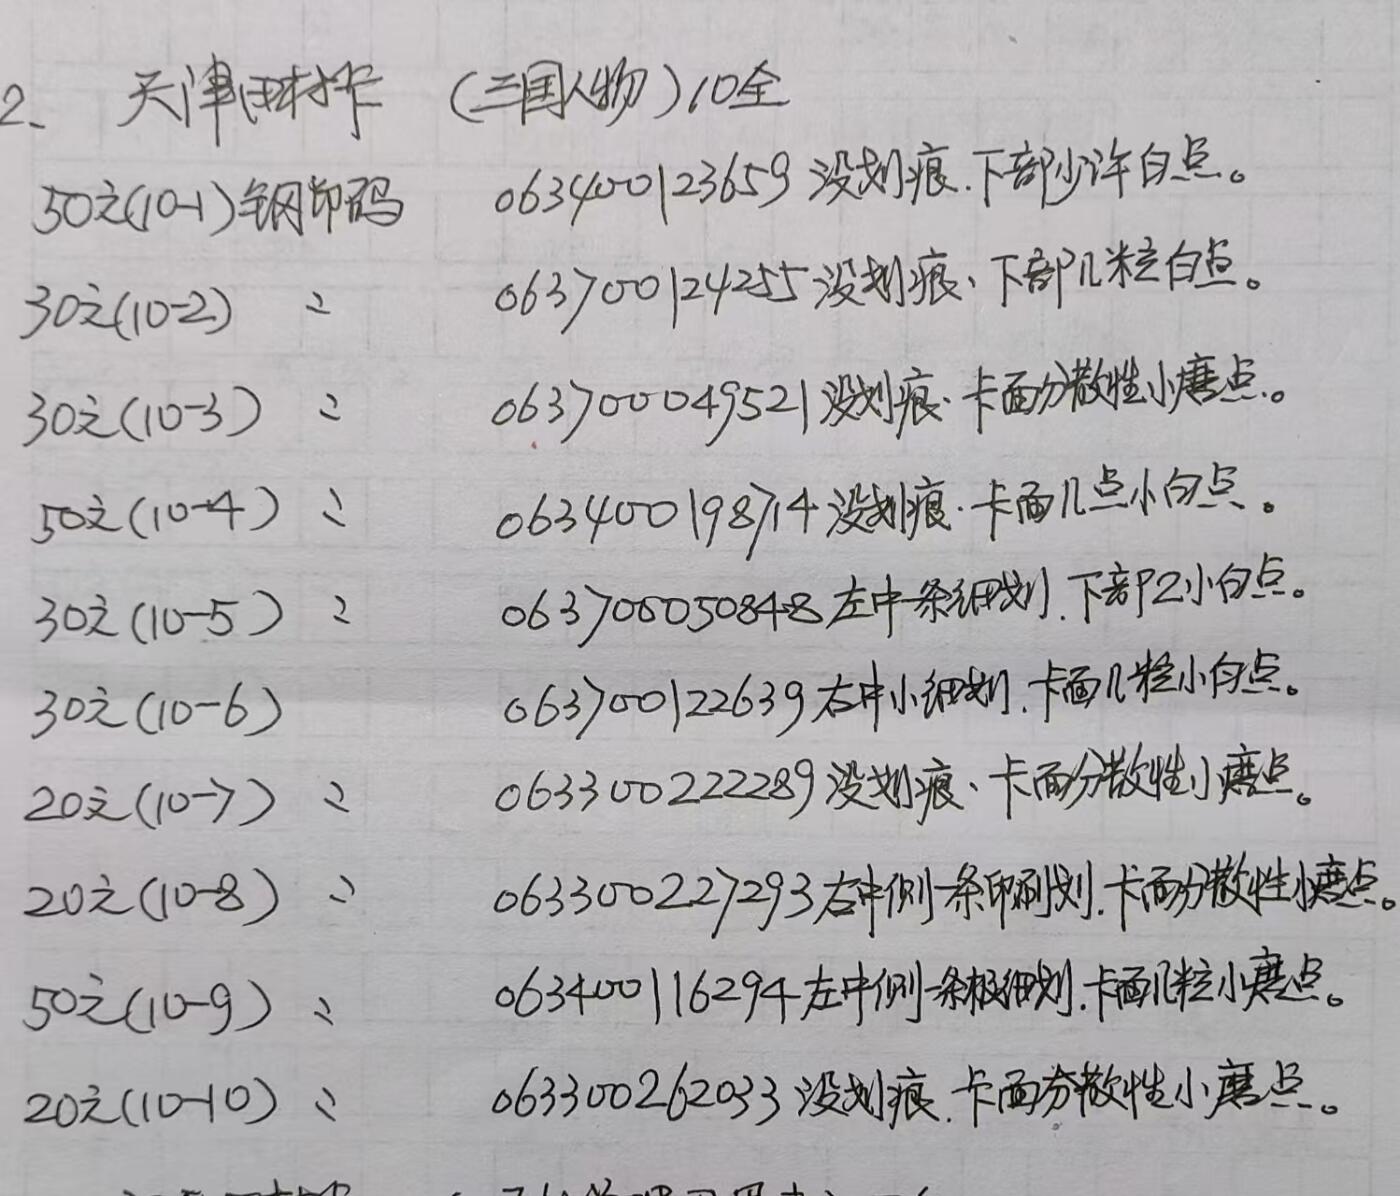 2、天津田村卡（三国人物）10全
50元(10-1)钢印码 063400123659没划痕.下部少许白点。
30元(10-2) 〃 063700124255没划痕、下部几粒白点。
30元(10-3) 〃 063700049521没划痕.卡面分散性小磨点。
50元(10-4) 〃 063400198714没划痕.卡面几点小白点。
30元(10-5) 〃 063700050848左中一条细划.下部2小白点。
30元(10-6) 063700122639右中小细划.卡面几粒小白点。
20元(10-7) 〃 063300222289没划痕、卡面分散性小磨点。
20元(10-8) 〃 063300227293右中侧一条印刷划.卡面分散性小磨点。
50元(10-9) 〃 063400116294左中侧一条极细划.卡面几粒小磨点。
20元(10-10) 〃 063300262033没划痕.卡面分散性小磨点。